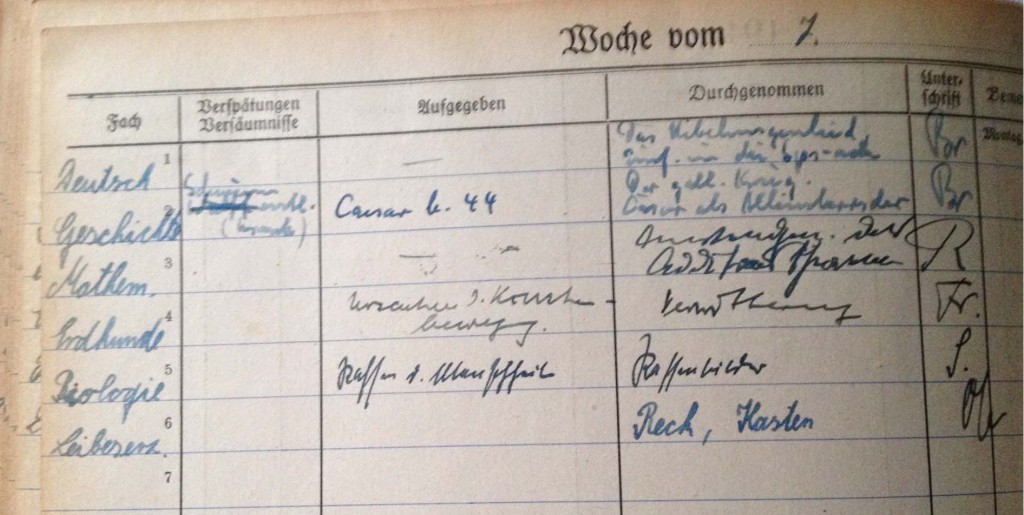 Woche vom 7.
Fach Verspätungen Versäumnisse Aufgegeben Durchgenommen Unterschrift
1 Deutsch — Das Nibelungenlied Br
2 Geschichte Caesar b. 44 Der gall. Krieg. Br
Cäsar als Alleinherrscher
3 Mathem. — der R
4 Erdkunde Ursachen d. Krusten- Verwitterung Fr.
bewegg.
5 Biologie Rassen d. Menschheit Rassenbilder S.
6 Leibeserz. Reck, Kasten
7